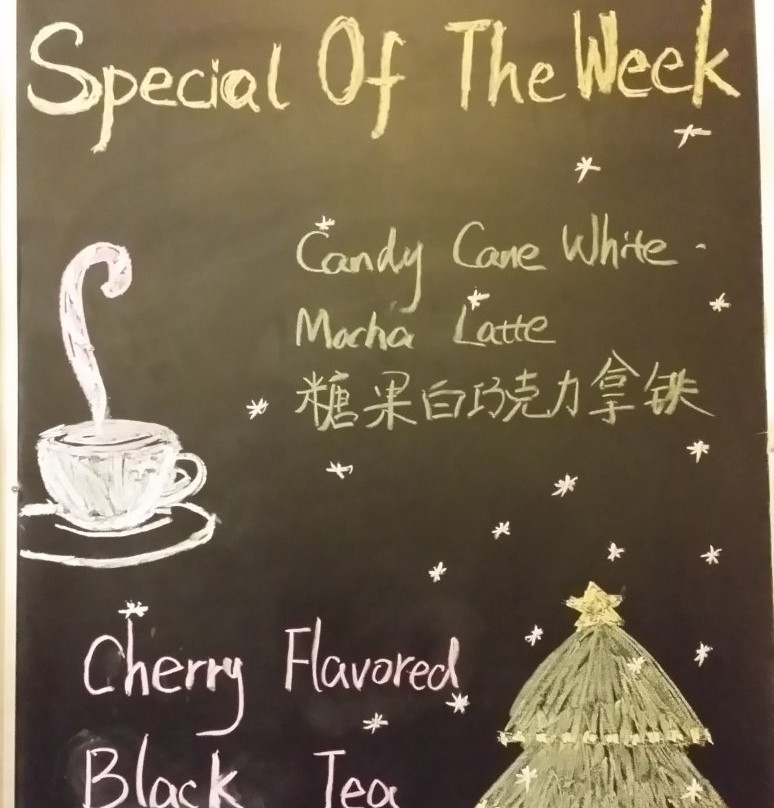 Special Of The Week
Candy Cane White
Mocha Latte
糖果白巧克力拿铁
Cherry Flavored
Black Tea